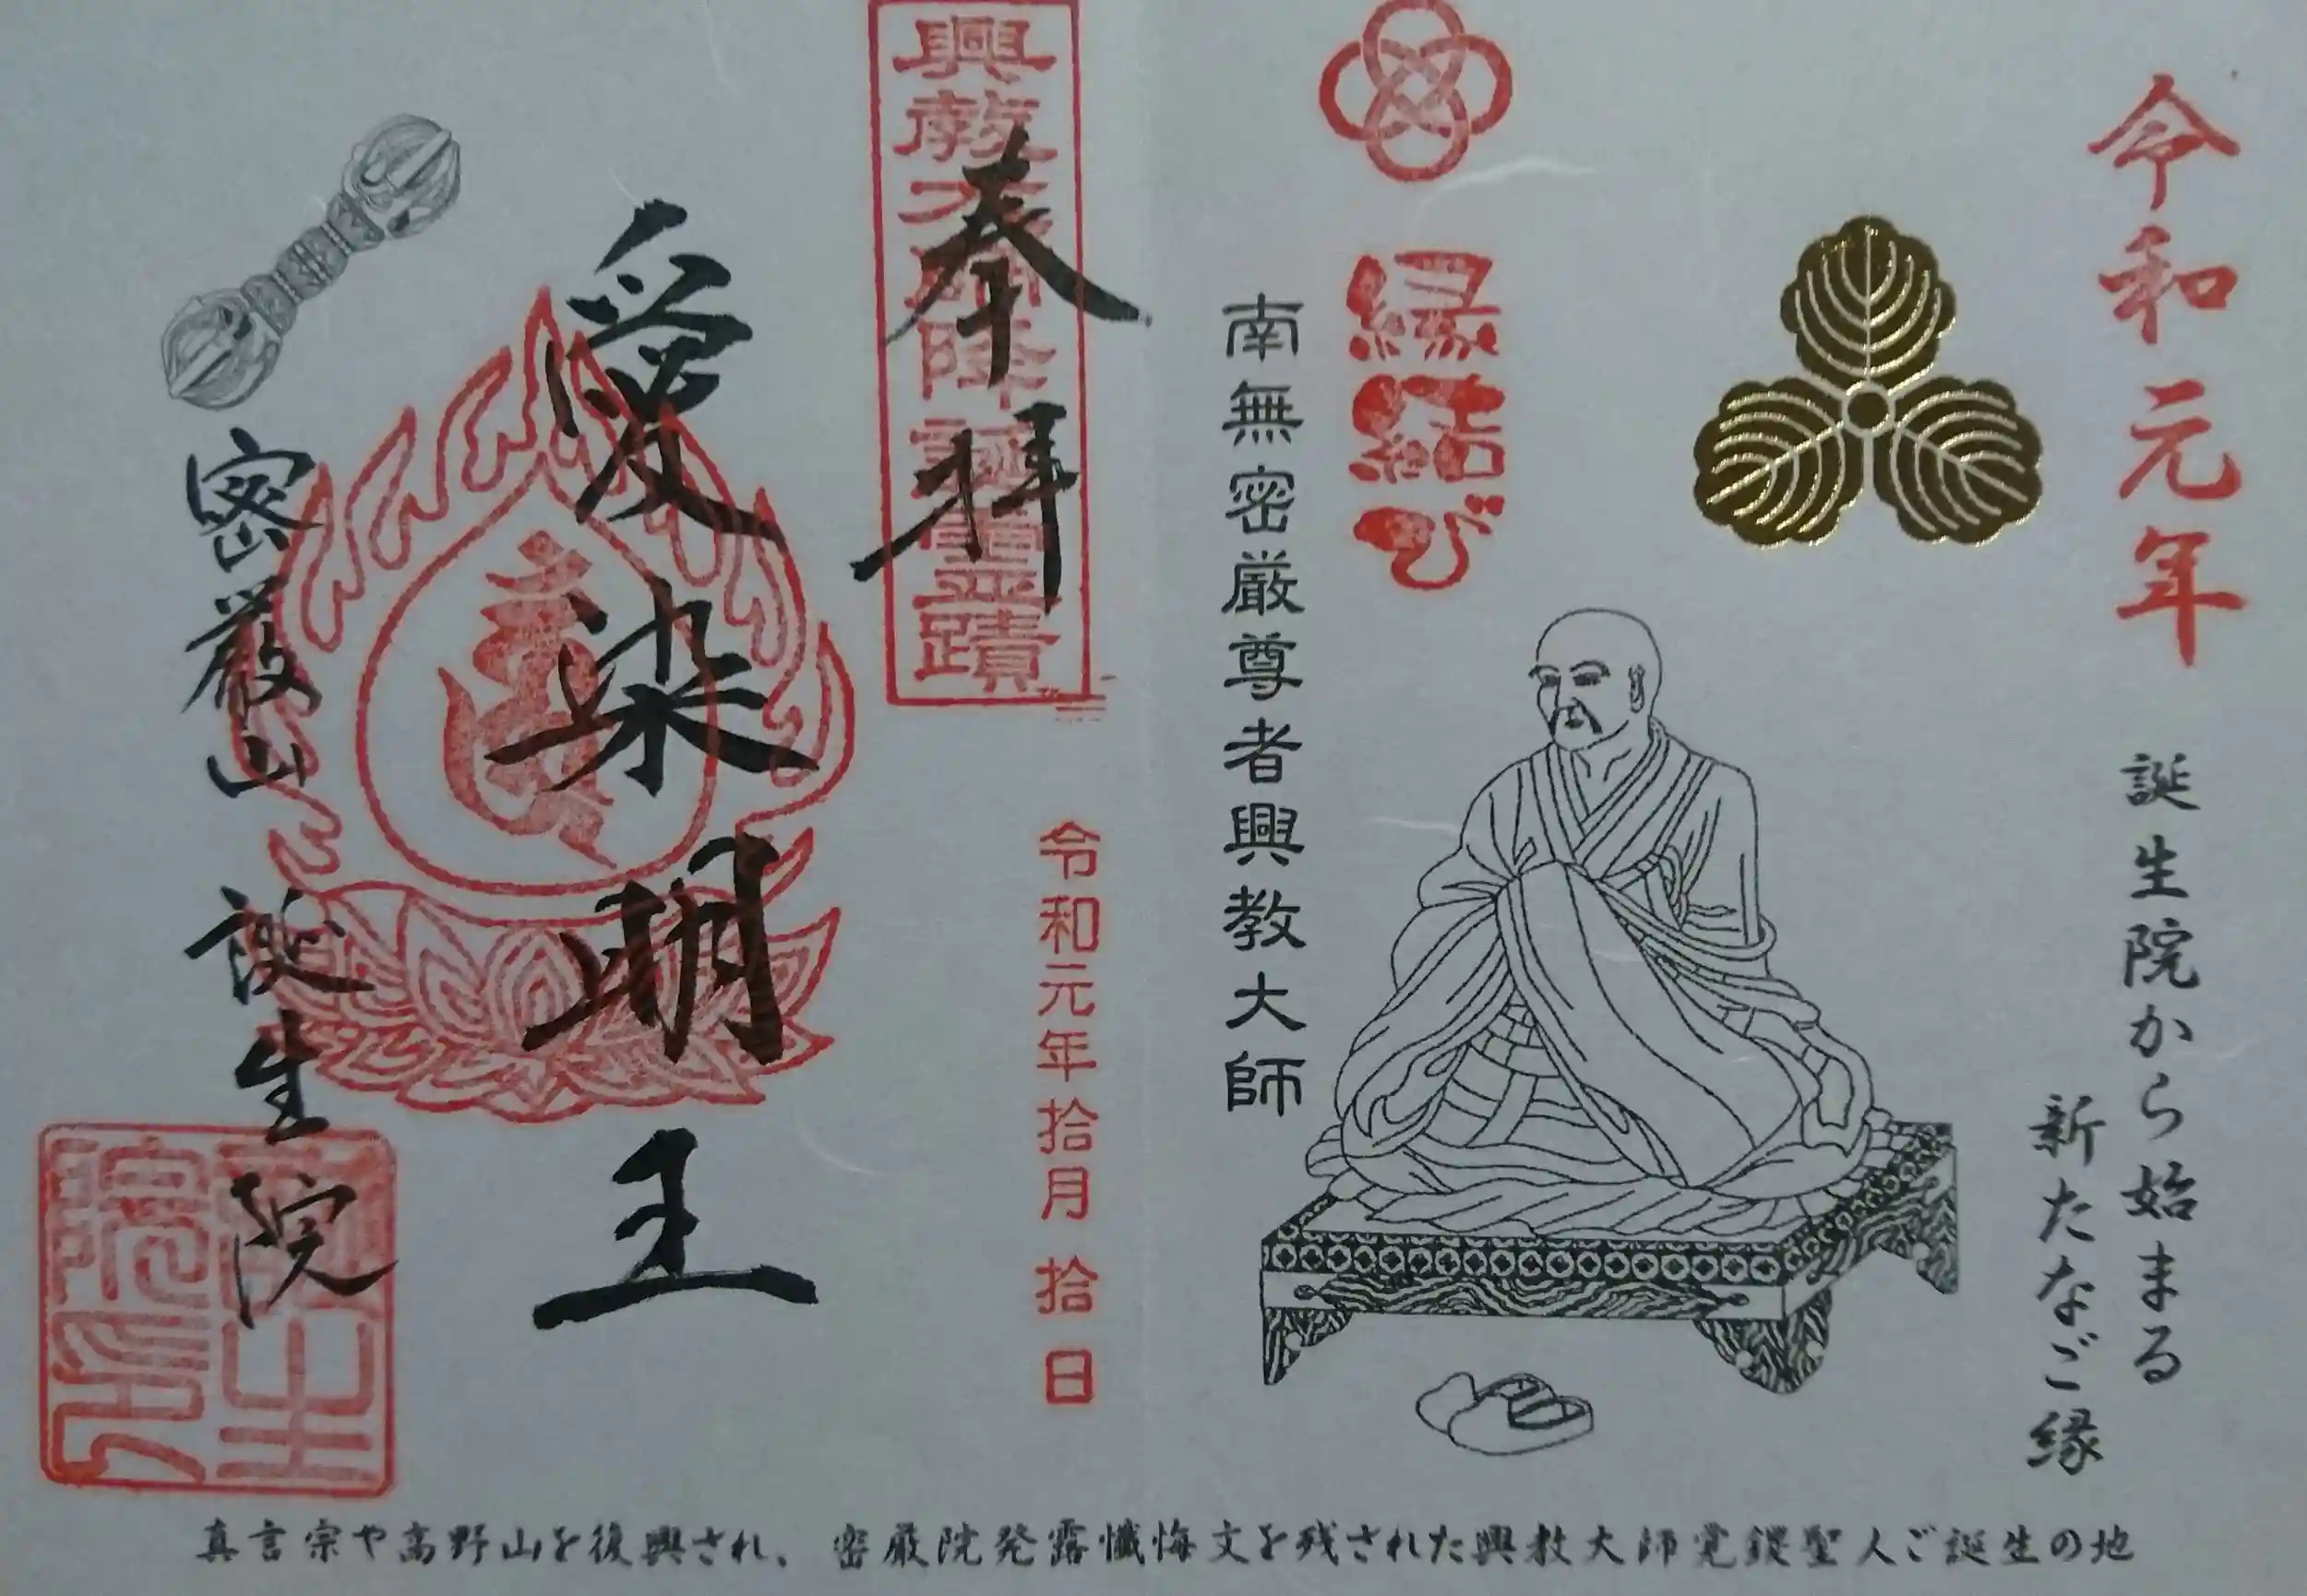 令和元年
誕生院から始まる
新たなご縁
縁結び
南無密厳尊者興教大師
興教大師降誕霊蹟
奉拝
令和元年拾月拾日
愛染明王
密厳山 誕生院
誕生院印
真言宗や高野山を復興され、密厳院発露懺悔文を残された興教大師覚鑁聖人ご誕生の地